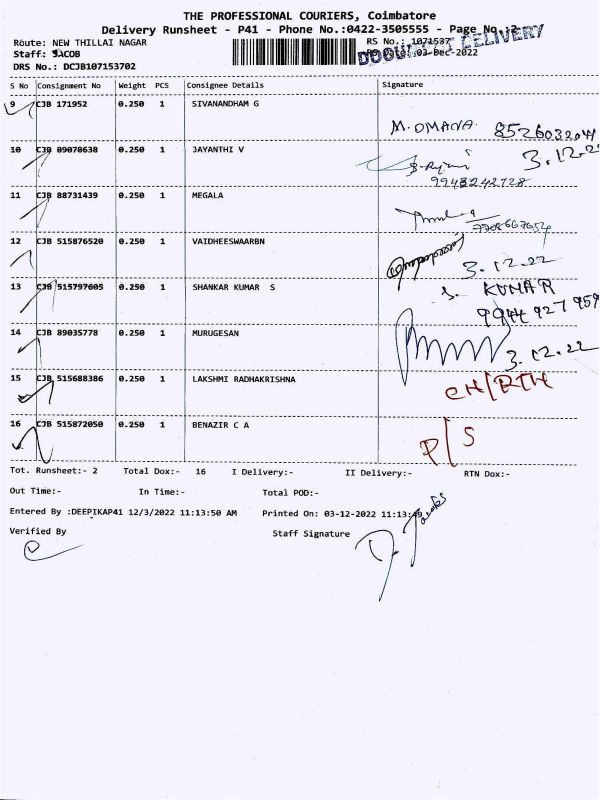 THE PROFESSIONAL COURIERS, Coimbatore
Delivery Runsheet - P41 - Phone No.:0422-3505555 - Page No.:2
Route: NEW THILLAI NAGAR RS No.: 1071537
DOCUMENT DELIVERY
Staff: JACOB RS Date: 03-Dec-2022
DRS No.: DCJB107153702
S No Consignment No Weight PCS Consignee Details Signature
9 CJB 171952 0.250 1 SIVANANDHAM G
M. OMANA. 8526032041
10 CJB 89078638 0.250 1 JAYANTHI V
3.12.22
9943242728
11 CJB 88731439 0.250 1 MEGALA
12 CJB 515876520 0.250 1 VAIDHEESWAARBN
3.12.22
13 CJB 515797605 0.250 1 SHANKAR KUMAR S
S. KUMAR
9944 927 959
14 CJB 89035778 0.250 1 MURUGESAN
3.12.22
15 CJB 515688386 0.250 1 LAKSHMI RADHAKRISHNA
CH/RTH
16 CJB 515872050 0.250 1 BENAZIR C A
P/S
Tot. Runsheet:- 2 Total Dox:- 16 I Delivery:- II Delivery:- RTN Dox:-
Out Time:- In Time:- Total POD:-
Entered By :DEEPIKAP41 12/3/2022 11:13:50 AM Printed On: 03-12-2022 11:13:49
Verified By Staff Signature